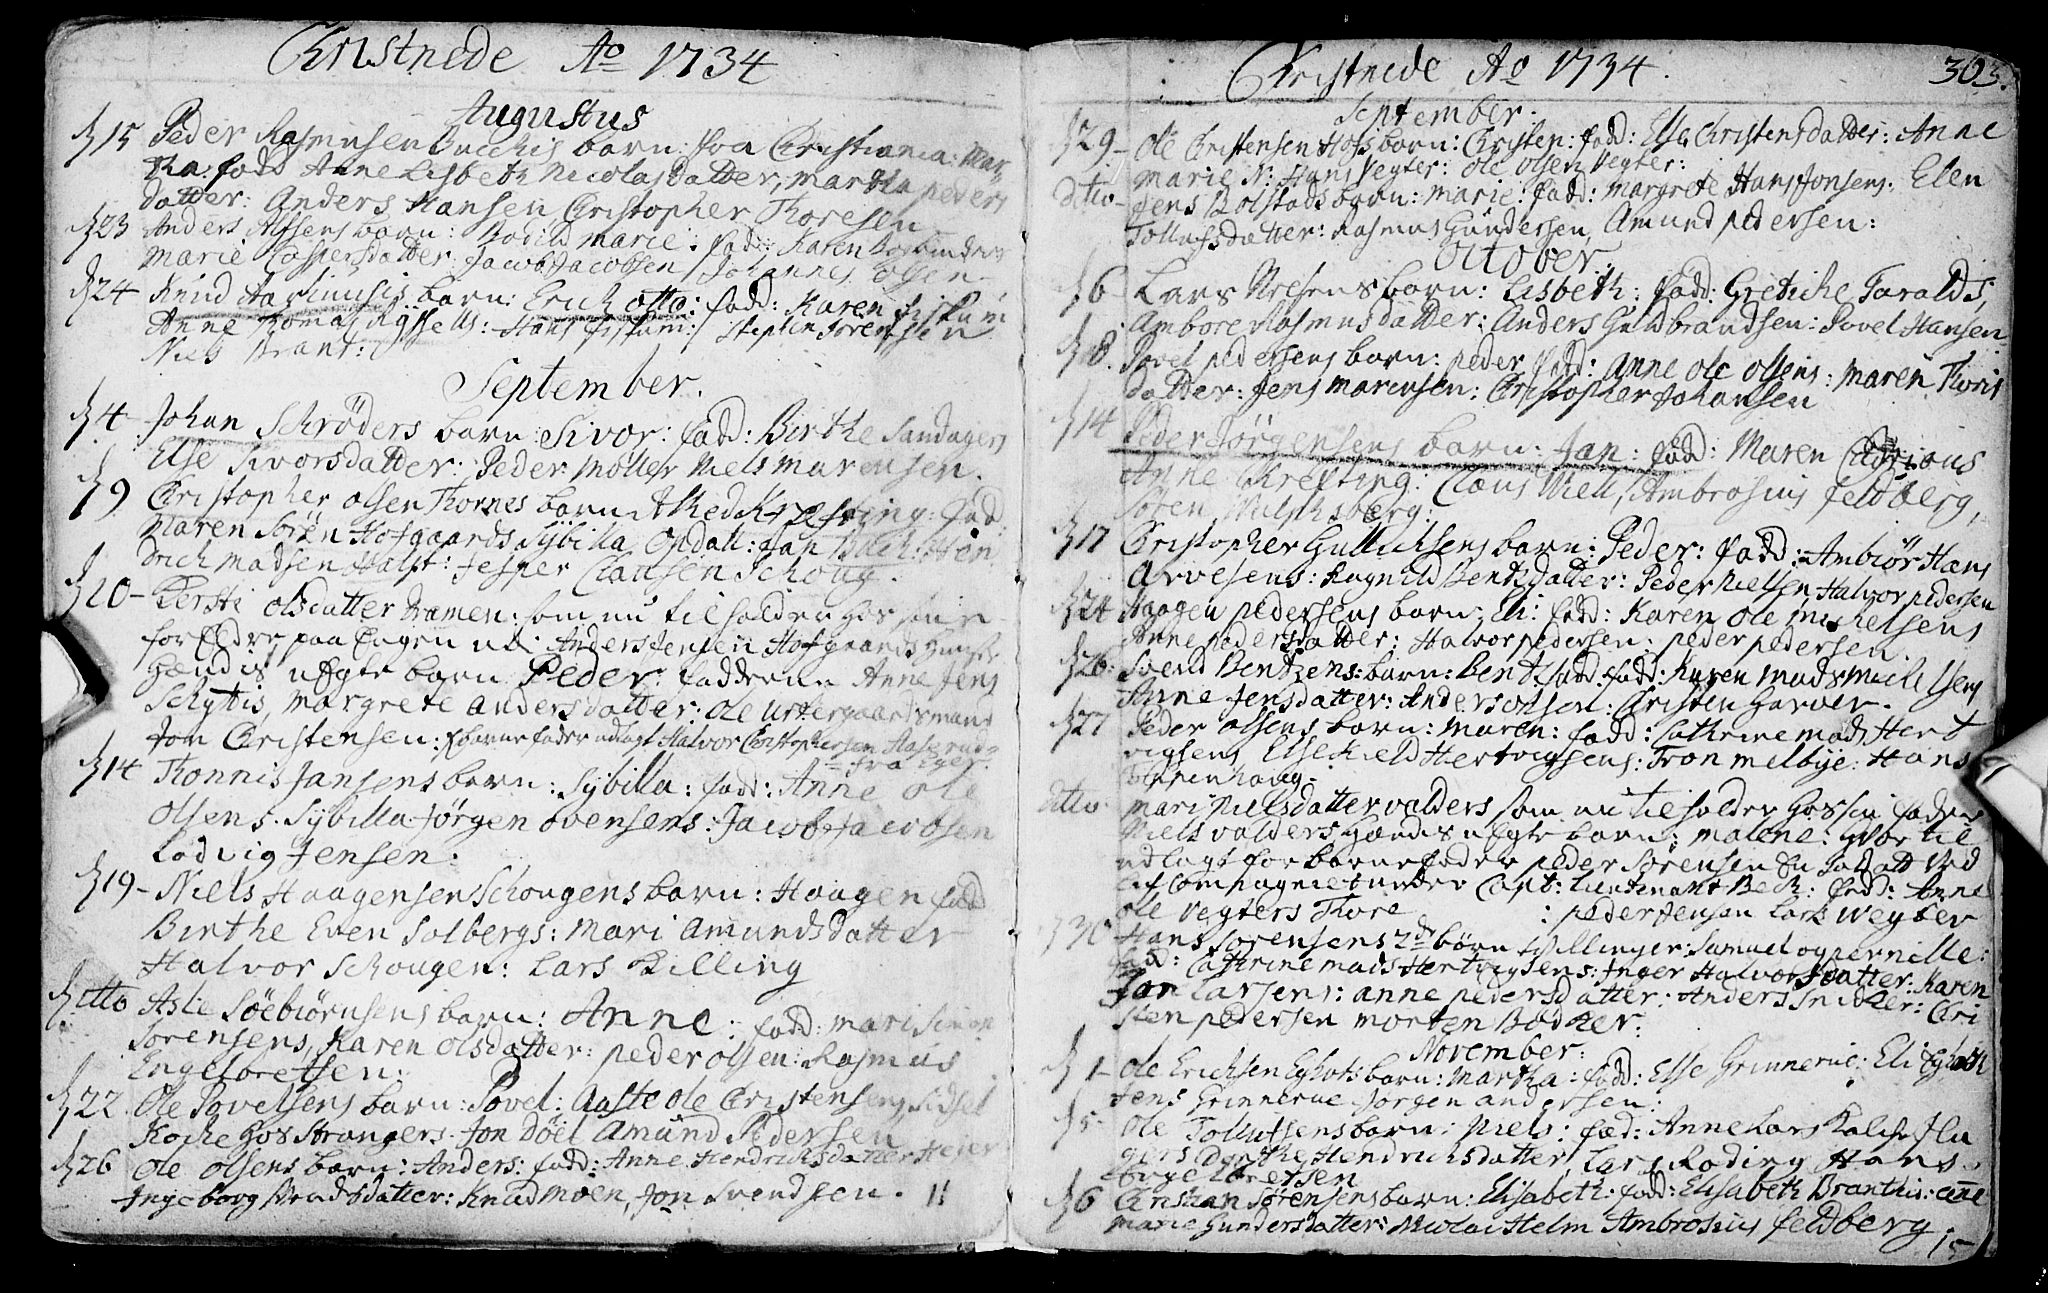 Christnede Ao 1734
Augustus
15 Peder Rasmusen barn: fra Christiania: Mar
tha: fadd Anne Lisbeth Nicolasdatter, martha peders
datter: Anders Hansen Christopher Thoresen
23 Anders Alfsens barn: Bodild marie: fadd: Karen
Marie Caspersdatter. Jacob Jacobsen Johannes Olsen
24 Knud barn: Erich otto: fadd: Karen fiskum
Anne Thomas: Hans fiskum: Sørensen
Niels Brant:
September.
4 Johan Schrøders barn: Sivor: fadd: Birthe Sandagers
Else Sivorsdatter: Peder Møller Niels marensen.
9 Christopher olsen Thornes barn fad:
Maren Søren Hofgaards Sybilla Opdall: Jan Bach: Hen
drich madsen Halst: Jesper Clausen Schoug.
10 Kersti olsdatter Dramen: som nu til holder hos sin
forældre paa Eugen Anders Jensen Hofgaards
hendis uegte barn Peder: fadderne Anne Jens
Schyttis, margrete andersdatter: ole
Jon Christensen: barnefader udlagt Halvor Christophersen
fra Eger.
14 Thonnis Jansens barn: Sybilla: fadd: Anne ole
olsens. Sybilla Jørgen ovensens: Jacob Jacobsen
Lodvig Jensen:
19 Niels Haagensen Schougens barn: Haagen fadd
Birthe Even Solbergs: Mari Amundsdatter
Halvor Schougen: Lars Killing
ditto Aslie Søebiørnsens barn: Anne: fadd: mari Simon
Sorensens, Karen olsdatter: peder olsen: Rasmus
Engebretsen:
22 Ole Povelsens barn: Povel: Aaste ole Christensens, Sidsel
Koche hos Strangers. Jon Döel Amund Pedersen
26 ole olsens barn: Anders: fadd: Anne Hendrichsdatter
Ingeborg datter: Knud Moen, Jon Svendsen. 11
Christnede Ao 1734. 303.
September.
29 ole Christensen Hofs barn: Christen: fadd: Else Christensdatter: Anne
Marie N: Hans Vegter: ole olsen Vegter:
ditto Jens Bolstads barn: marie: fadd: margrete Hans Jonsens. Elen
Tollefsdatter: Rasmus Gundersen, Amund pedersen:
October.
6 Lars barn: Lisbeth: fadd: Gretiche Taralds,
Ambore Rasmusdatter: Anders Guldbrandsen: Povel Hansen
8. Povel pedersens barn: peder fadd: Anne ole olsens: maren Thoris
datter: Jens marensen: Christopher Johansen
14 Peder Jörgensens barn: Jan: fadd: Maren
Anne Krefting: Claus Wiell, Ambrosius feldberg,
Søren
17 Christopher Gullichsens barn: Peder: fadd: Ambiør Hans
Arvesens: Ragnild Bentsdatter: Peder Nielsen Halvor pedersen
24 Haagen pedersens barn: Eli: fadd: Karen ole michelsens
Anne pedersdatter: Halvor pedersen: peder pedersen.
26. Svend Bentzens: barn: Bent: fadd: Karen Mads michelsens
Anne Jensdatter: Anders olsen: Christen Garver.
27 Peder olsens barn: maren: fadd: Cathrine mads Hert
vigsens Else Kield Hertvigsens: Tron melbye: Hans
Tinnenhoug.
ditto mari Nielsdatter valders som nu til holder hos sin fader
Niels valders hendis uegte barn: malene: hvor til
udlagt for barnefader peder Sørensen En Soldatt ved
lif Compagniet under Capt: Lieutenant Beck: fad: Anne
ole vegters Thore : peder Jensen Lars Wegter
30 Hans Sorensens 2de børn tvillinger: Samuel og pernille:
fadd: Cathrine mads Hertvigsens: Inger Halvorsdatter: Karen
Jan Larsens: anne pedersdatter: Anders Snidker: Chri
sten pedersen morten Bødker:
November:
1 ole Erichsen barn: Martha: fadd: Else Grinnerue: Eli
Jens Grinnerue Jørgen andersen:
5 ole Tollefsens barn: Niels: fad: Anne Lars
Dorthe Hendrichsdatter, Lars Roding Hans
6 Christian Sørensens barn: Elisabeth: fadd: Elisabeth Branthis: Anne
Marie Gundersdatter: Nicolai Helm Ambrosius feldberg
15